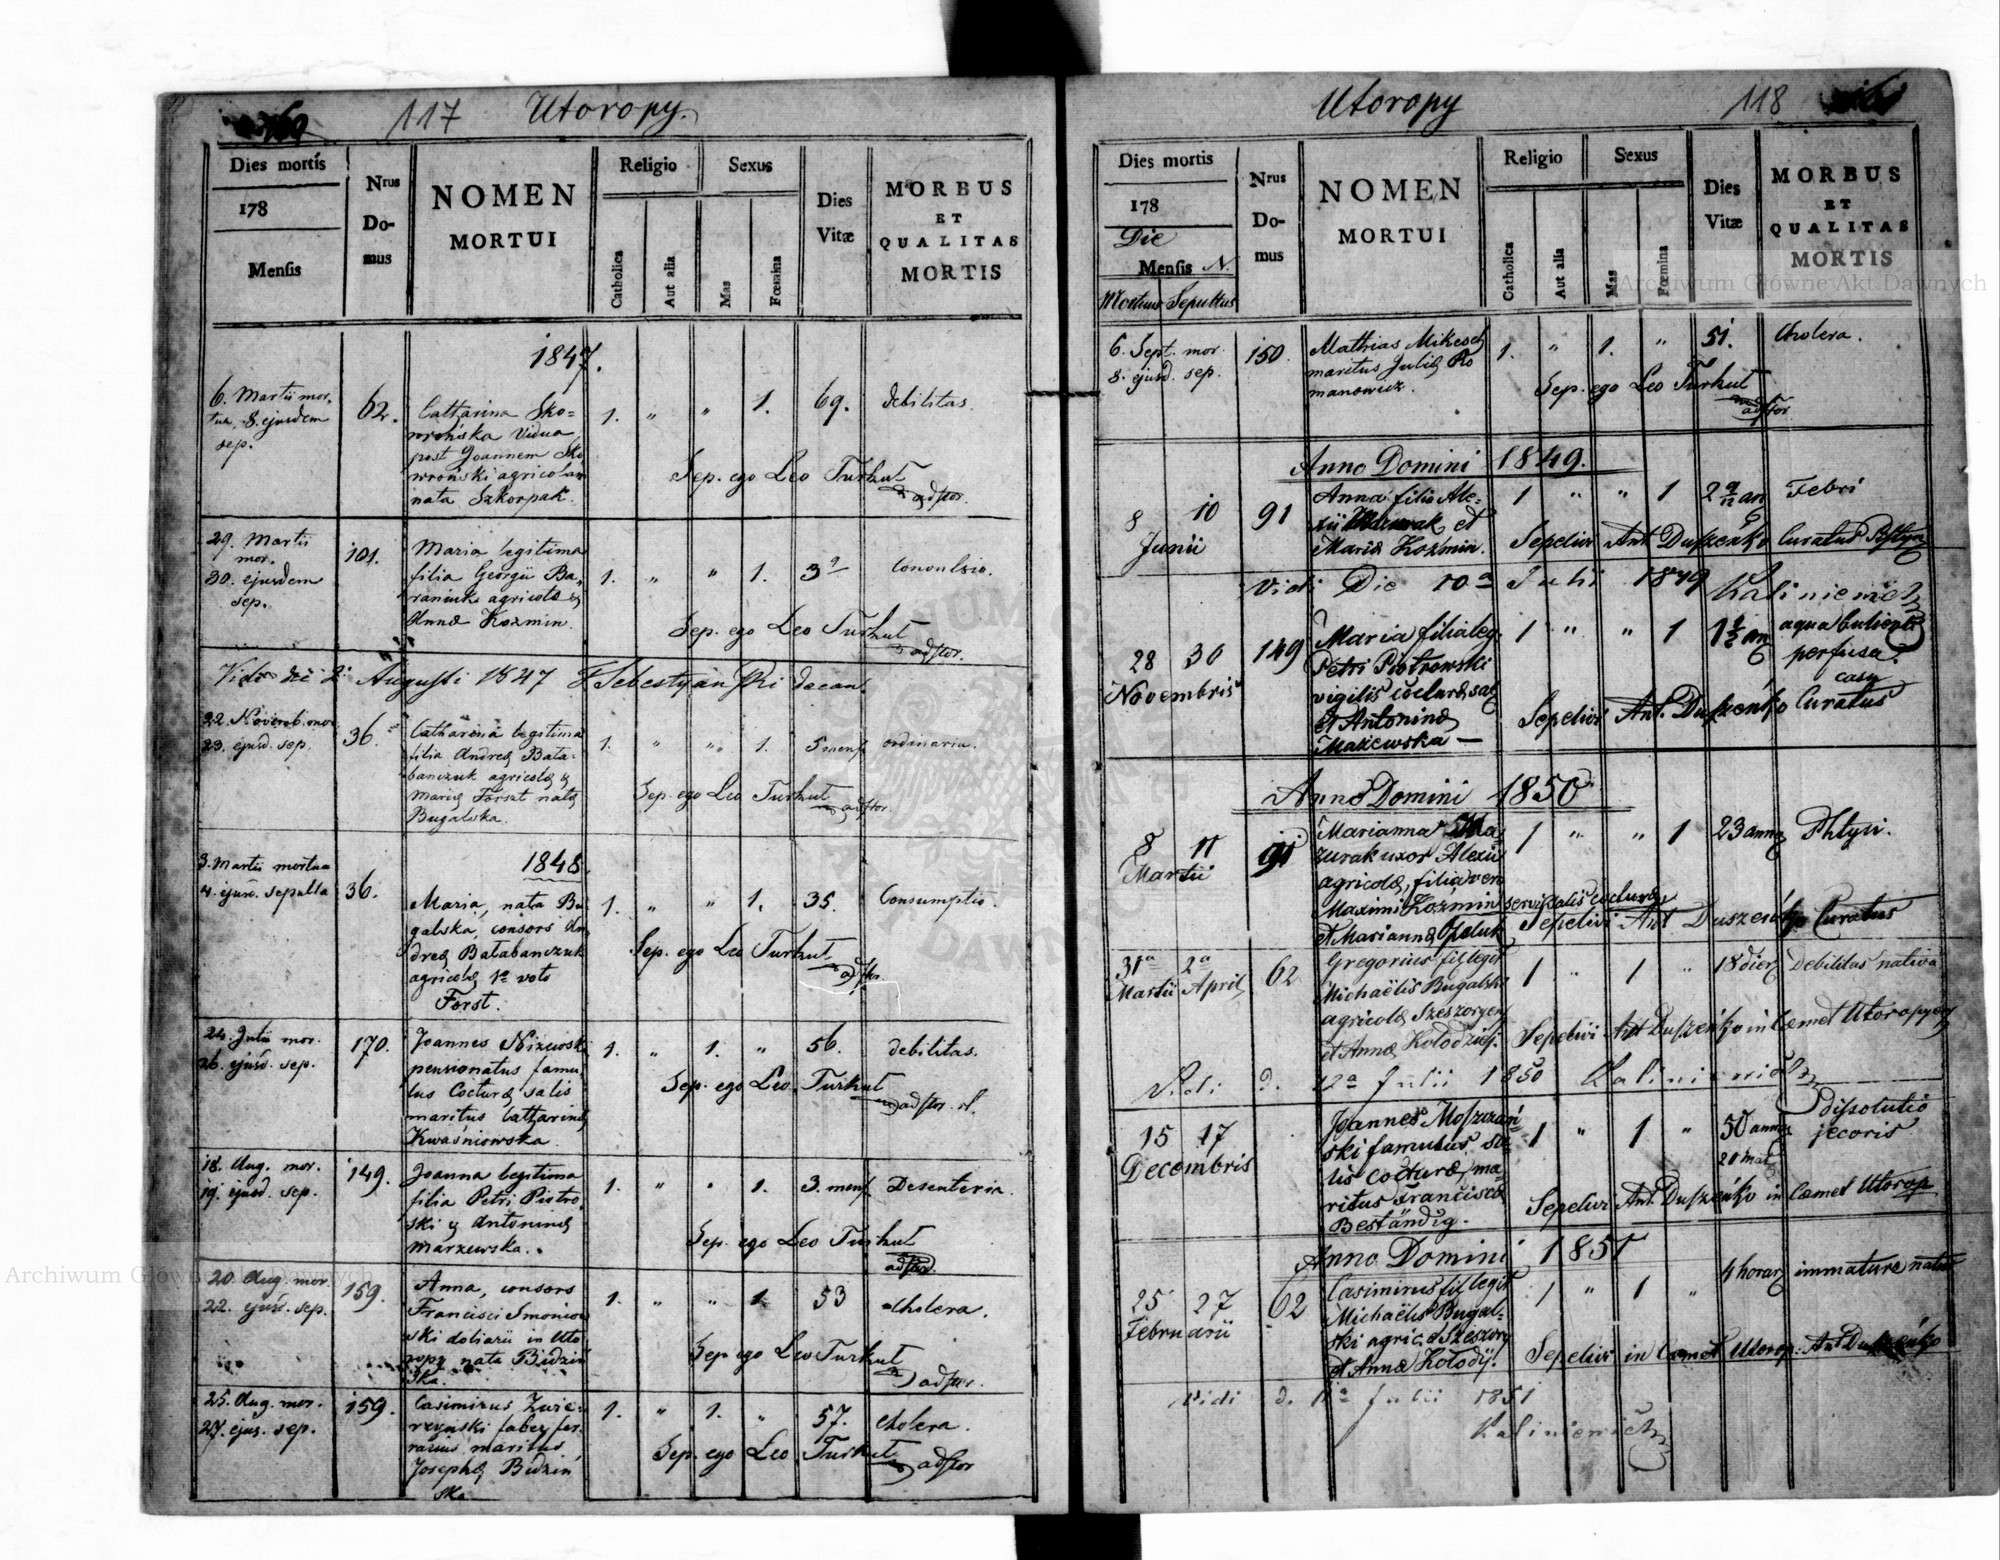 117 Utoropy.
Dies mortis
178
Mensis
Nrus
Do-
mus
NOMEN
MORTUI
Religio
Catholica
Aut alia
Sexus
Mas
Fœmina
Dies
Vitæ
MORBUS
ET
QUALITAS
MORTIS
1847.
6. Martii mor.
tua, 8. ejusdem
sep.
62.
Catharina Sko=
wrońska Vidua
post Joannem Sko
wroński agricolam
nata Szkorpak.
1. " " 1. 69. debilitas.
Sep. ego Leo Turkut
adstor.
29. Martii
mor.
30. ejusdem
sep.
101.
Maria legitima
filia Georgii Ba,
raniuk agricolæ &
Annæ Kozmin.
1. " " 1. Convulsio.
Sep. ego Leo Turkut
adstor.
Augusti 1847 Sebestyański decan.
22. Novemb. mor.
23. ejusd. sep.
36.
Catharina legitima
filia Andreæ Bata-
banczuk agricolæ &
Mariæ Forszt natæ
Bugalska.
1. " " 1. 5 mens. ordinaria.
Sep. ego Leo Turkut
adstor.
1848.
3. Martii mortua
4. ejusd. sepulta
36.
Maria, nata Bu
galska, consors An
dreæ Batabanczuk
agricolæ 1º voto
Forst.
1. " " 1. 35. Consumptio.
Sep. ego Leo Turkut
adstor.
24. Julii mor.
26. ejusd. sep.
170.
Joannes Nizewski
pensionatus famu
lus Cocturæ salis
maritus Catharinæ
Kwaśniowska.
1. " 1. " 56. debilitas.
Sep. ego Leo Turkut
adstor.
18. Aug. mor.
19. ejusd. sep.
149.
Joanna legitima
filia Petri Piotro
ski & Antoninæ
Marzewska.
1. " " 1. 3. mens. Desenteria.
Sep. ego Leo Turkut
adstor.
20. Aug. mor.
22. ejusd. sep.
159.
Anna, consors
Francisci Smoniow
ski doliarii in Uto
ropy nata Bidziń
ska.
1. " " 1. 53 Cholera.
Sep ego Leo Turkut
adstor.
25. Aug. mor.
27. ejus. sep.
159.
Casimirus Zwie-
rzynski faber fer-
rarius maritus
Josephæ Bidziń
ska
1. " 1. " 57. cholera.
Sep. ego Leo Turkut
adstor
Utoropy 118
Dies mortis
178
Die
Mensis N.
Mortuus Sepultus
Nrus
Do-
mus
NOMEN
MORTUI
Religio
Catholica
Aut alia
Sexus
Mas
Fœmina
Dies
Vitæ
MORBUS
ET
QUALITAS
MORTIS
6. Sept. mor.
8. ejusd. sep.
150.
Mathias Mikesch
maritus Juliæ Ro
manowicz.
1. " 1. " 51. Cholera.
Sep. ego Leo Turkut
adstor
Anno Domini 1849.
8 10
Junii
91
Anna filia Ale-
xii Mazurak et
Mariæ Kozmin.
1 " " 1 2 9/12 an Febri
Sepelivi Ant Duszeńko Curatus
Vidi Die 10a Julii 1849 Kaliniewicz
28 30
Novembris
149
Maria filia leg.
Petri Piotrowski
vigilis cocturæ sal
et Antoninæ
Mazewska —
1 " " 1 1 1/2 an aqua bulienti
perfusa.
casu
Sepelivi Ant. Duszeńko Curatus
Anno Domini 1850
8 11
Martii
91
Marianna Ma
zurak uxor Alexii
agricolæ, filia
Maximi Kozmin servi salis cocturæ
et Mariannæ Opaluk
1 " " 1 23 annor Phtysi.
Sepelivi Ant Duszeńko Curatus
31a 2a
Martii April.
62
Gregorius fil legit
Michaëlis Bugalski
agricolæ Szeszoryen
et Annæ Kołodzij.
1 " 1 " 18 dier Debilitas nativa
Sepelivi Ant Duszeńko in Cæmet Utoropyen
Vidi d. 12a Julii 1850 Kaliniewicz
15 17
Decembris
Joannes Moszczań-
ski famulus sa-
lis cocturæ, ma-
ritus Franciscæ
Beständig.
1 " 1 " 50 annor dissolutio
jecoris
Sepelivi Ant. Duszeńko in Cæmet Utorop
Anno Domini 1851
25 27
Februarii
62
Casimirus fil legit
Michaëlis Bugal-
ski agric. Szeszory
et Annæ Kołodij.
1 " 1 " 4 horar immature natus
Sepelivi in Cæmet Utorop. Ant Duszeńko
Vidi d. 11a Julii 1851
Kaliniewicz
Archiwum Główne Akt Dawnych
Archiwum Główne Akt Dawnych